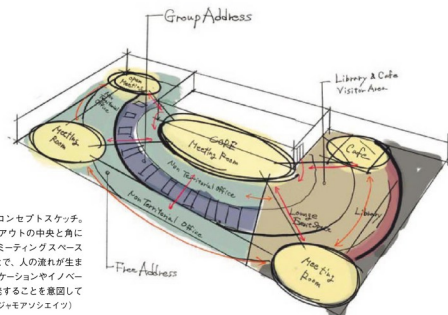 Group Address
Library & Cafe
Visitor Area
open
Meeting
Meeting
Room
CORE
Meeting Room
Cafe
Non Territorial Office
Non Territorial Office
Lounge
Library
Free Address
Meeting
Room
コンセプトスケッチ。
アウトの中央と角に
ミーティングスペース
とで、人の流れが生ま
ケーションやイノベー
発することを意図して
ジャモアソシエイツ）